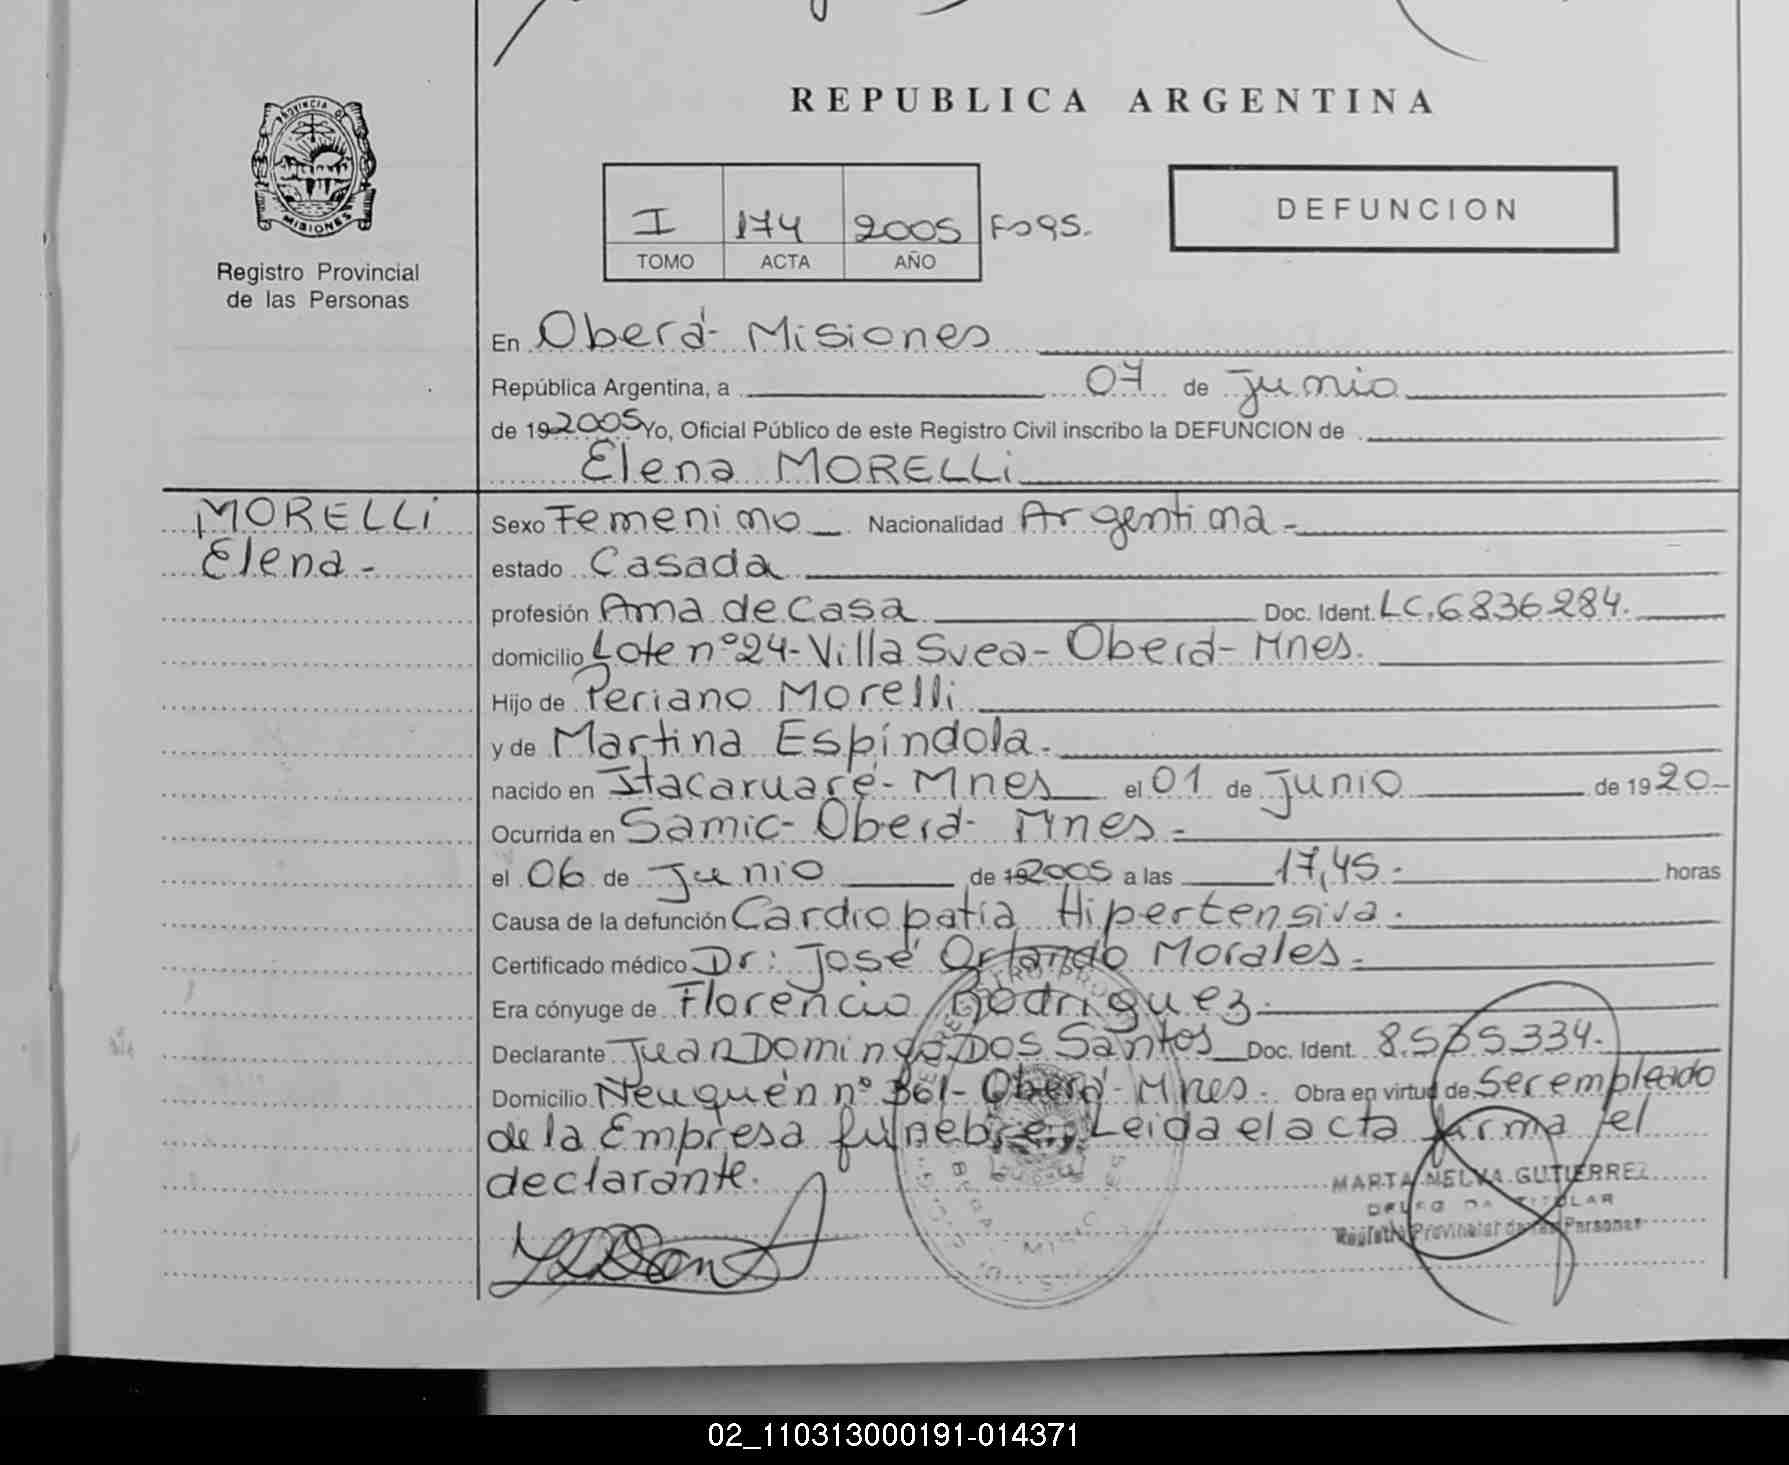 PROVINCIA DE
MISIONES
Registro Provincial
de las Personas
REPUBLICA ARGENTINA
I 174 2005 Fo95.
TOMO ACTA AÑO
DEFUNCION
En Oberá- Misiones
República Argentina, a 07 de junio
de 192005 Yo, Oficial Público de este Registro Civil inscribo la DEFUNCION de
Elena MORELLi
MORELLi
Elena-
Sexo Femenino Nacionalidad Argentina-
estado Casada
profesión Ama de Casa Doc. Ident. LC.6836284.
domicilio Lote nº24-Villa Svea-Oberá-Mnes.
Hijo de Periano Morelli
y de Martina Espíndola.
nacido en Itacaruaré-Mnes el 01 de junio de 1920-
Ocurrida en Samic-Oberá-Mnes-
el 06 de junio de 192005 a las 17,45- horas
Causa de la defunción Cardiopatía Hipertensiva-
Certificado médico Dr: José Orlando Morales-
Era cónyuge de Florencio Rodriguez-
Declarante Juan Domingo DOS Santos Doc. Ident. 8.535.334.
Domicilio Neuquén nº 361-Oberá-Mnes. Obra en virtud de Ser empleado
de la Empresa fúnebre, Leida el acta firma el
declarante.
MARTA NELVA GUTIERREZ
DELEGADA TITULAR
Registro Provincial de las Personas
02_110313000191-014371